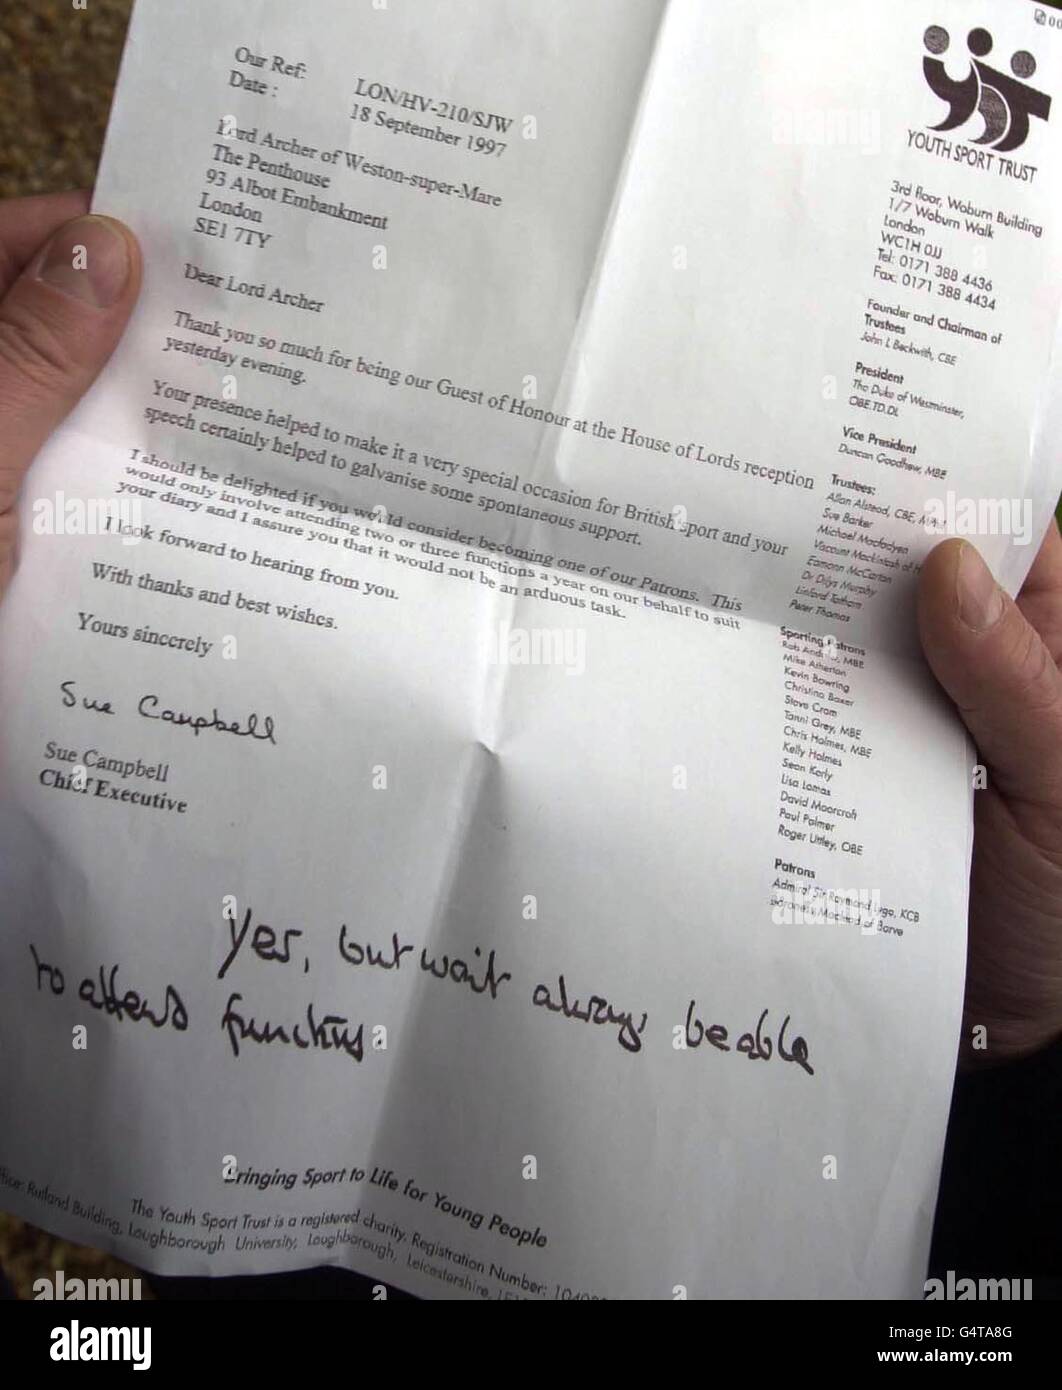 Our Ref: LON/HV-210/SJW
Date : 18 September 1997
Lord Archer of Weston-super-Mare
The Penthouse
93 Albot Embankment
London
SE1 7TY
Dear Lord Archer
Thank you so much for being our Guest of Honour at the House of Lords reception
yesterday evening.
Your presence helped to make it a very special occasion for British sport and your
speech certainly helped to galvanise some spontaneous support.
I should be delighted if you would consider becoming one of our Patrons. This
would only involve attending two or three functions a year on our behalf to suit
your diary and I assure you that it would not be an arduous task.
I look forward to hearing from you.
With thanks and best wishes.
Yours sincerely
Sue Campbell
Sue Campbell
Chief Executive
Yes, but wont always be able
to attend functions
YOUTH SPORT TRUST
3rd floor, Woburn Building
1/7 Woburn Walk
London
WC1H 0JJ
Tel: 0171 388 4436
Fax: 0171 388 4434
Founder and Chairman of
Trustees
John L Beckwith, CBE
President
The Duke of Westminster,
OBE.TD.DL
Vice President
Duncan Goodhew, MBE
Trustees:
Allan Alstead, CBE,
Sue Barker
Michael Macfadyen
Viscount Mackintosh of H
Eamonn McCartan
Dr Dilys Murphy
Linford Tatham
Peter Thomas
Sporting Patrons
Rob Andrew, MBE
Mike Atherton
Kevin Bowring
Christina Boxer
Steve Cram
Tanni Grey, MBE
Chris Holmes, MBE
Kelly Holmes
Sean Kerly
Lisa Lomas
David Moorcroft
Paul Palmer
Roger Uttley, OBE
Patrons
Admiral Sir Raymond Lygo, KCB
Baroness Macleod of Borve
Bringing Sport to Life for Young People
The Youth Sport Trust is a registered charity. Registration Number: 1040
ffice: Rutland Building, Loughborough University, Loughborough, Leicestershire, LE1
alamy
Image ID: G4TA8G
www.alamy.com